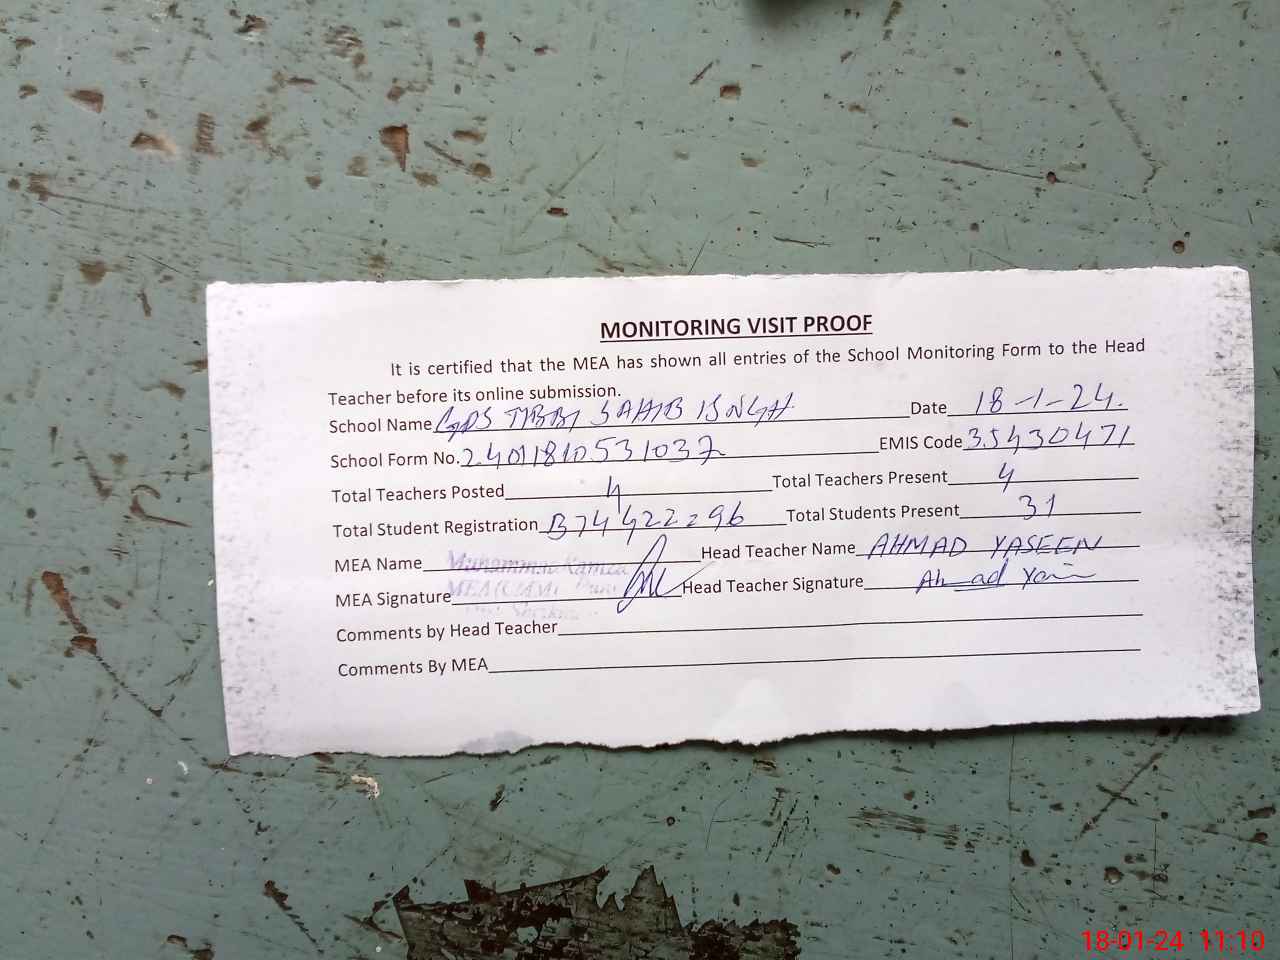 MONITORING VISIT PROOF
It is certified that the MEA has shown all entries of the School Monitoring Form to the Head
Teacher before its online submission.
School Name GPS TIBBI SAHIB Date 18-1-24.
School Form No. 24011810531037 EMIS Code 35430471
Total Teachers Posted 4 Total Teachers Present 4
Total Student Registration Total Students Present 31
MEA Name Muhammad Head Teacher Name AHMAD YASEEN
MEA Signature Head Teacher Signature Ahmad
Comments by Head Teacher
Comments By MEA
18-01-24 11:10